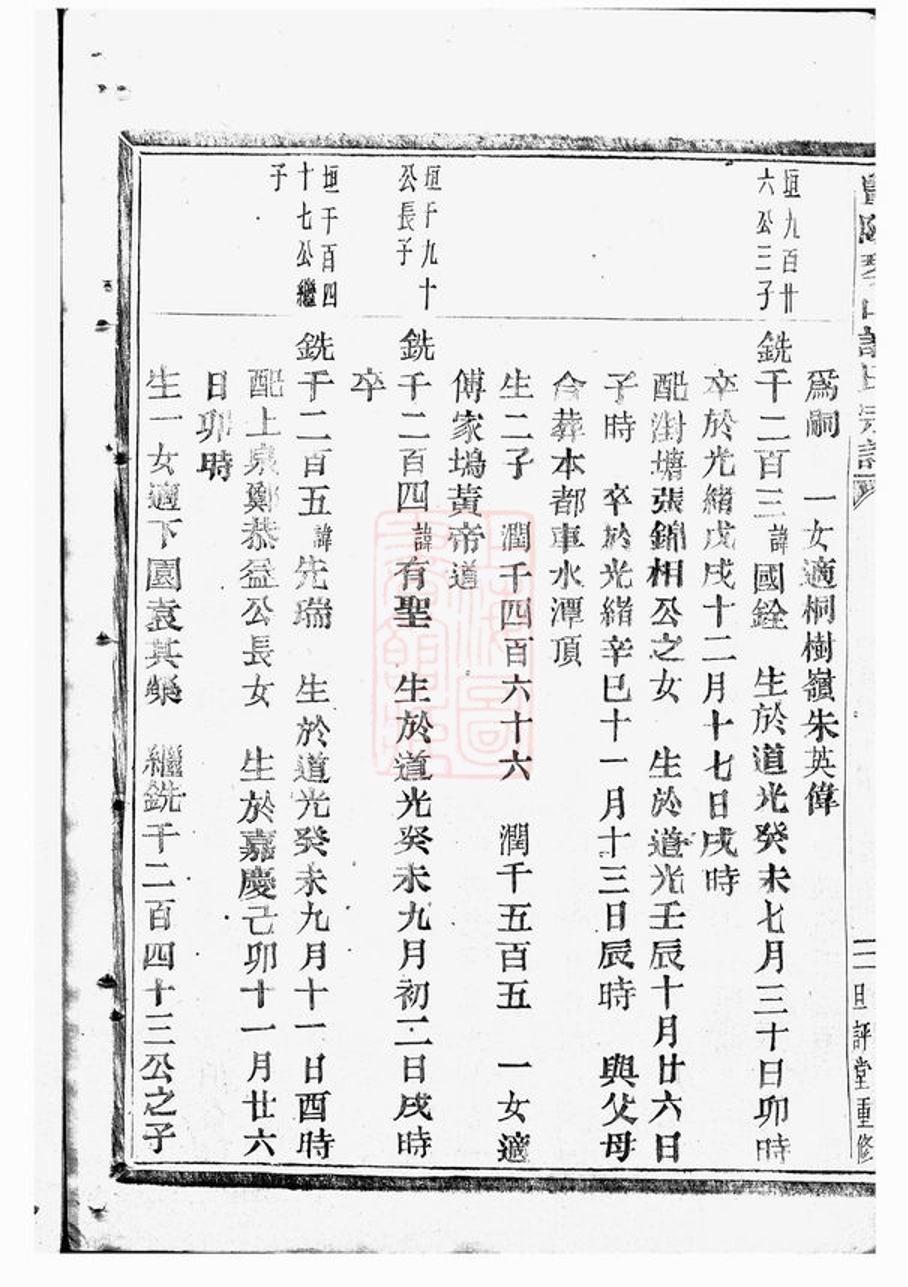 爲嗣　一女適桐樹嶺朱英偉
垣九百廿
六公三子
銑千二百三諱國銓　生於道光癸未七月三十日卯時
卒於光緒戊戌十二月十七日戌時
配澍塘張錦相公之女　生於道光壬辰十月廿六日
子時　卒於光緒辛巳十一月十三日辰時　與父母
合葬本都車水潭頂
生二子　潤千四百六十六　潤千五百五　一女適
傅家塢黃帝道
垣千九十
公長子
銑千二百四諱有聖　生於道光癸未九月初二日戌時
卒
垣千百四
十七公繼
子
銑千二百五諱先瑞　生於道光癸未九月十一日酉時
配上泉鄭恭益公長女　生於嘉慶己卯十一月廿六
日卯時
生一女適下園袁其榮　繼銑千二百四十三公之子
二
旦評堂重修